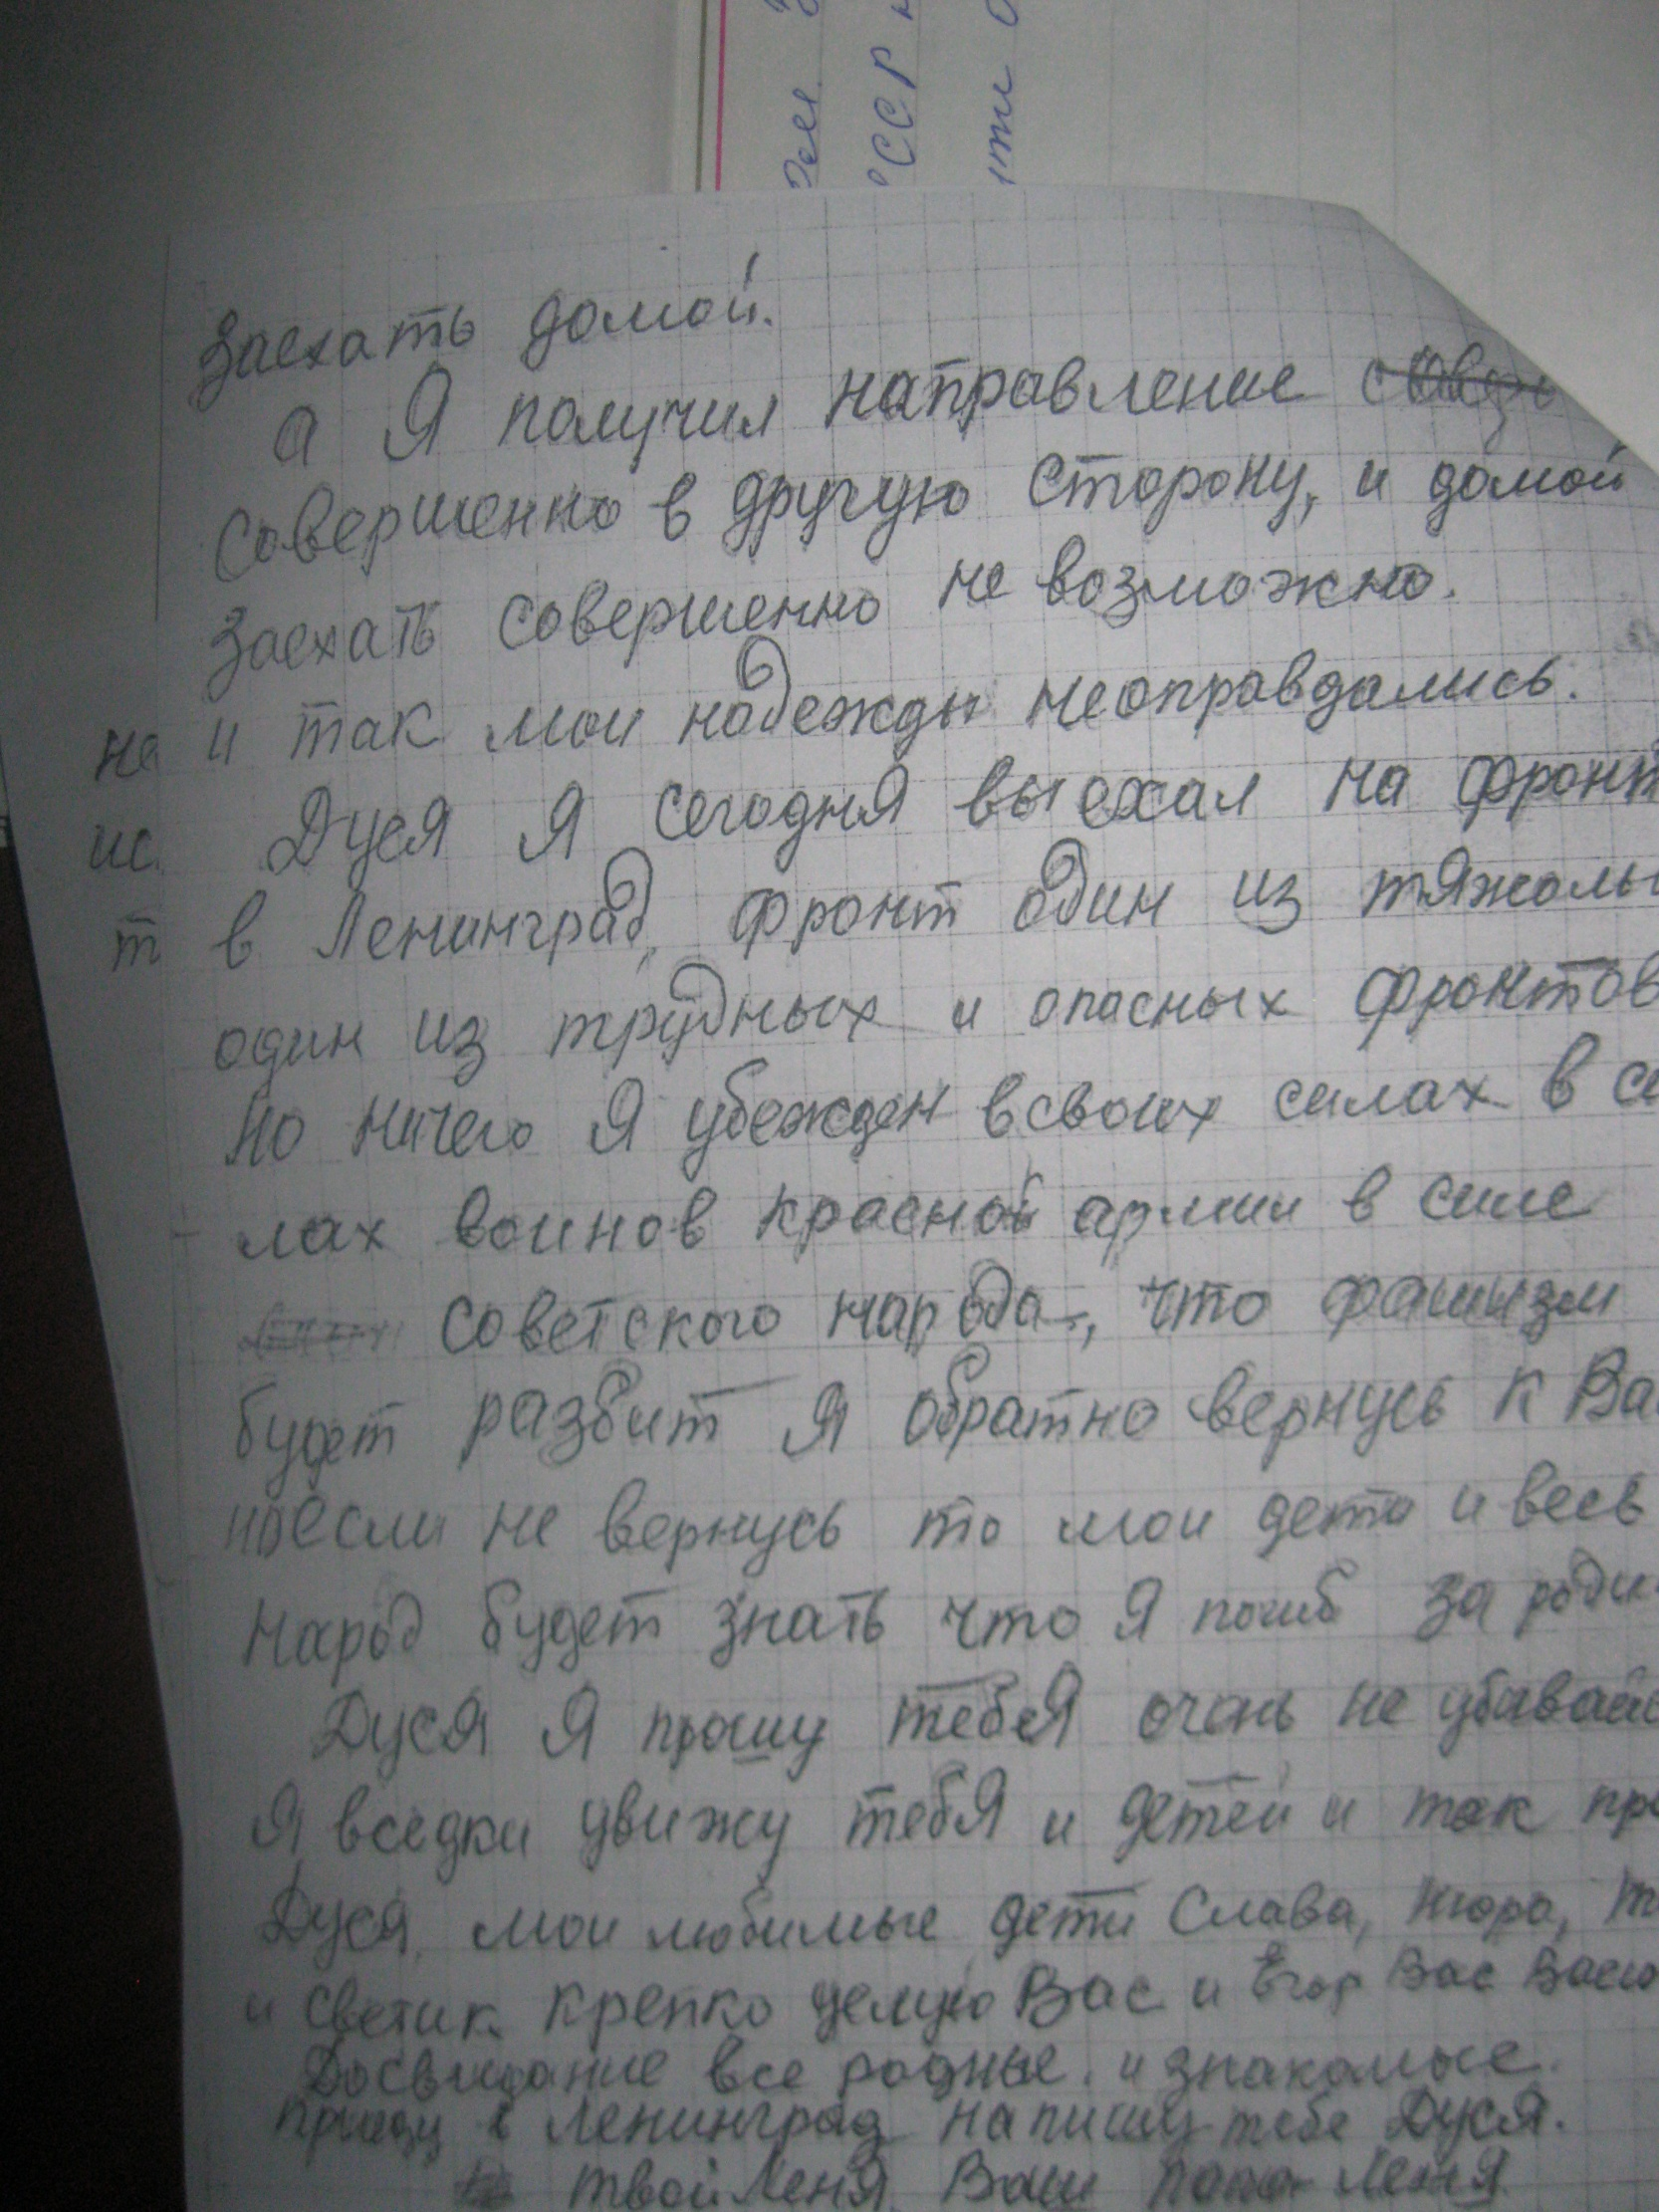 заехать домой.
а Я получил направление
совершенно в другую сторону, и домой
заехать совершенно не возможно.
и так мои надежды неоправдались.
Дуся Я сегодня выехал на фронт
в Ленинград, фронт один из тяжолы
один из трудных и опасных фронтов
но ничего Я убежден в своих силах в си
лах воинов красной армии в силе
советского народа, что фашизм
будет разбит Я обратно вернусь к Вам
но если не вернусь то мои дети и весь
народ будет знать что Я погиб за роди
Дуся Я прошу тебя очень не убивайс
Я вседки увижу тебЯ и детей и так про
Дуся, мои любимые дети Слава, Нюра, т
и светик крепко целую Вас и Вас
Досвидание все родные и знакомые.
приеду в Ленинград напишу тебе Дуся.
твой Леня Ваш папа Леня
ССР